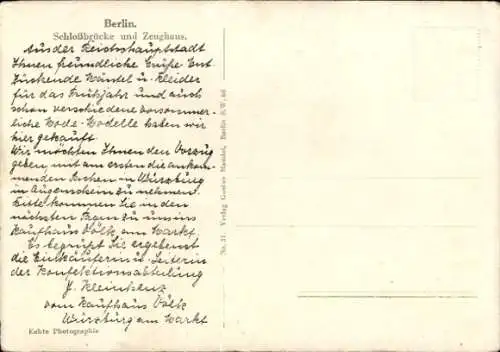 Berlin.
Schloßbrücke und Zeughaus.
Aus der Reichshauptstadt
Ihnen freundliche Grüße Ent
zückende Mäntel u. Kleider
für das Frühjahr und auch
schon verschiedene vorsommer-
liche Mode-Modelle haben wir
hier gekauft
Wir möchten Ihnen den Vorzug
geben, mit am ersten die ankom-
menden Sachen in Würzburg
in Augenschein zu nehmen.
Bitte kommen Sie in den
nächsten Tagen zu uns ins
Kaufhaus Völk am Markt.
Es begrüßt Sie ergebenst
die Einkäuferin u. Leiterin
der Konfektionsabteilung
J. Kleinhenz
vom Kaufhaus Völk
Würzburg am Markt
Echte Photographie
No. 31 Verlag Gustav Mandel, Berlin S.W. 68